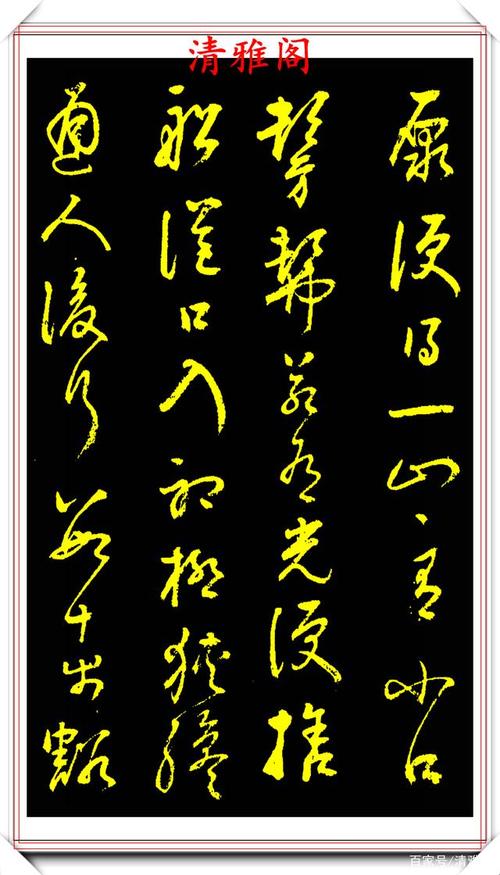 清雅阁
原便得一山〻有小口
髣髴若有光便捨
船從口入初極狹纔
通人復行數十步豁
百家号/清雅